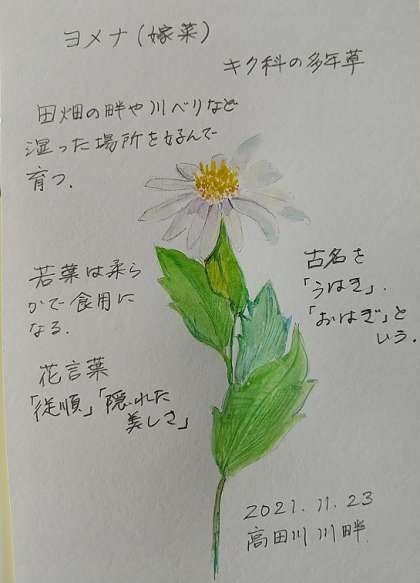 ヨメナ(嫁菜)
キク科の多年草
田畑の畔や川べりなど
湿った場所を好んで
育つ.
若葉は柔ら
かで食用に
なる.
古名を
「うはぎ」.
「おはぎ」と
いう.
花言葉
「従順」「隠れた
美しさ」
2021.11.23
高田川川畔